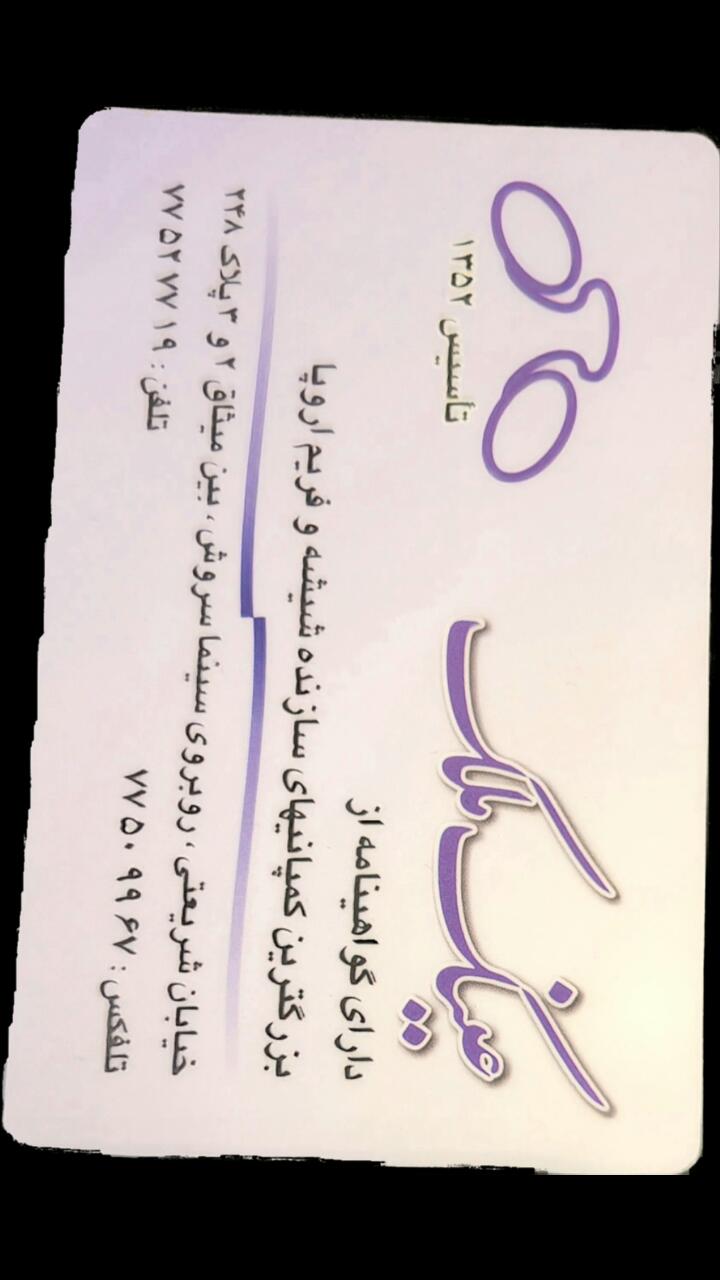 عینک ملک
تأسیس ۱۳۵۲
دارای گواهینامه از
بزرگترین کمپانیهای سازنده شیشه و فریم اروپا
خیابان شریعتی، روبروی سینما سروش، بین میثاق ۲ و ۳ پلاک ۲۴۸
تلفکس: ۷۷۵۰۹۹۶۷ تلفن: ۷۷۵۲۷۷۱۹